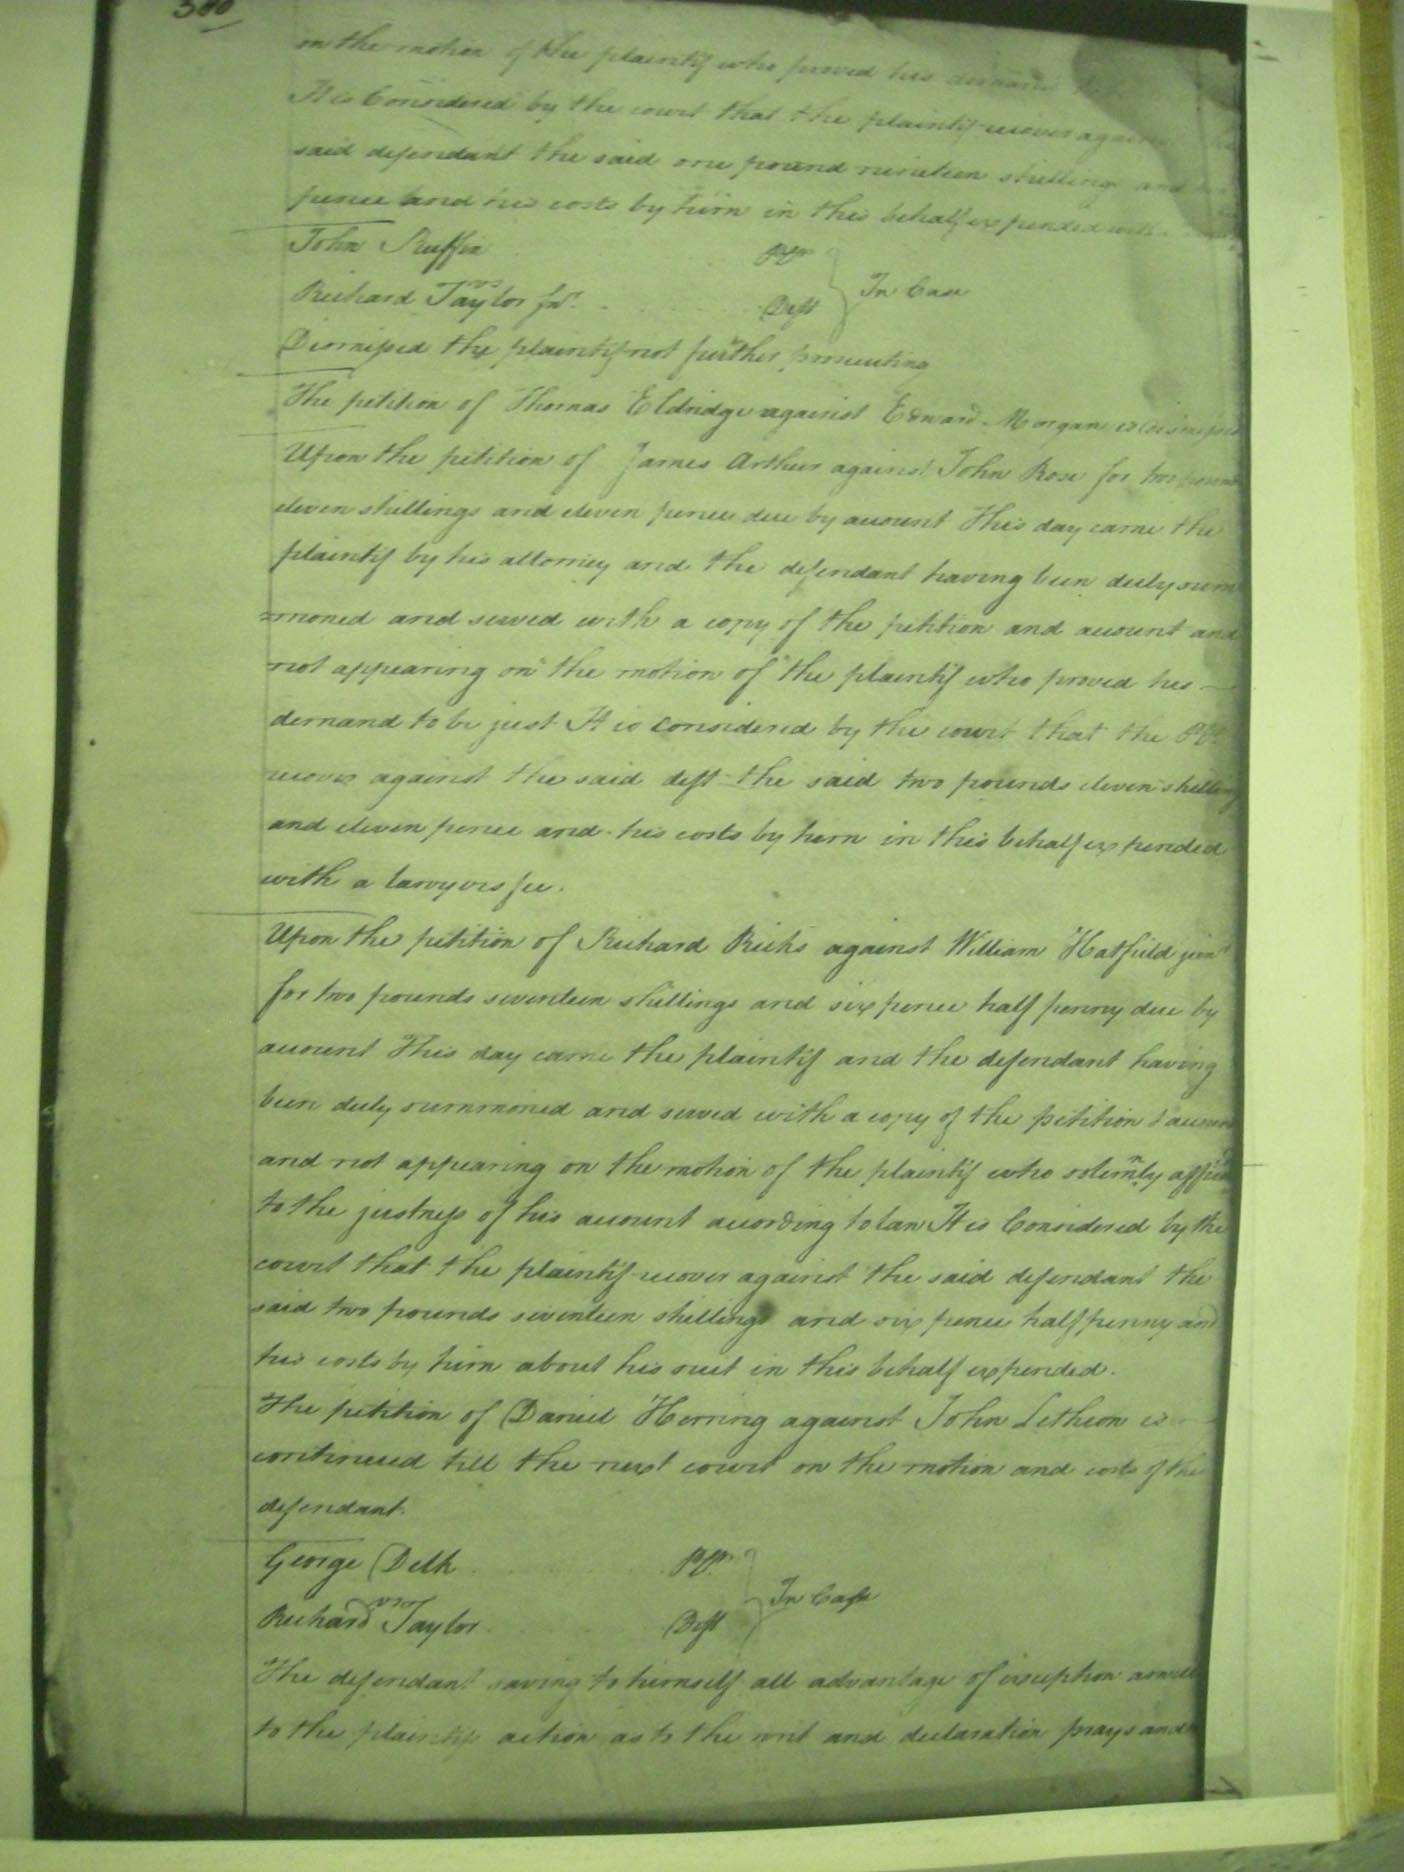 300
on the motion of the plaintif who proved his demand
It is Considered by the court that the plaintif recover against
said defendant the said one pound nineteen shillings and
pence and his costs by him in this behalf expended with
John Ruffin Plt
vs In Case
Richard Taylor Junr. Deft
Dismissed the plaintif not further prosecuting
The petition of Thomas Eldridge against Edward Morgan is dismissed
Upon the petition of James Arthur against John Rose for two pounds
eleven shillings and eleven pence due by account This day came the
plaintif by his attorney and the defendant having been duly sum
=moned and served with a copy of the petition and account and
not appearing on the motion of the plaintif who proved his —
demand to be just It is Considered by the court that the Plt.
recover against the said deft the said two pounds eleven shillings
and eleven pence and his costs by him in this behalf expended
with a lawyers fee.
Upon the petition of Richard Ricks against William Hatfield junr
for two pounds seventeen shillings and six pence half penny due by
account This day came the plaintif and the defendant having
been duly summoned and served with a copy of the petition & account
and not appearing on the motion of the plaintif who solemnly affirmd
to the justness of his account according to law It is Considered by the
court that the plaintif recover against the said defendant the
said two pounds seventeen shillings and six pence half penny and
his costs by him about his suit in this behalf expended.
The petition of Daniel Herring against John Letheon is
continued till the next court on the motion and costs of the
defendant.
George Delk Plt.
vs In Case
Richard Taylor Deft
The defendant saving to himself all advantage of exception aswell
to the plaintifs action as to the writ and declaration prays and